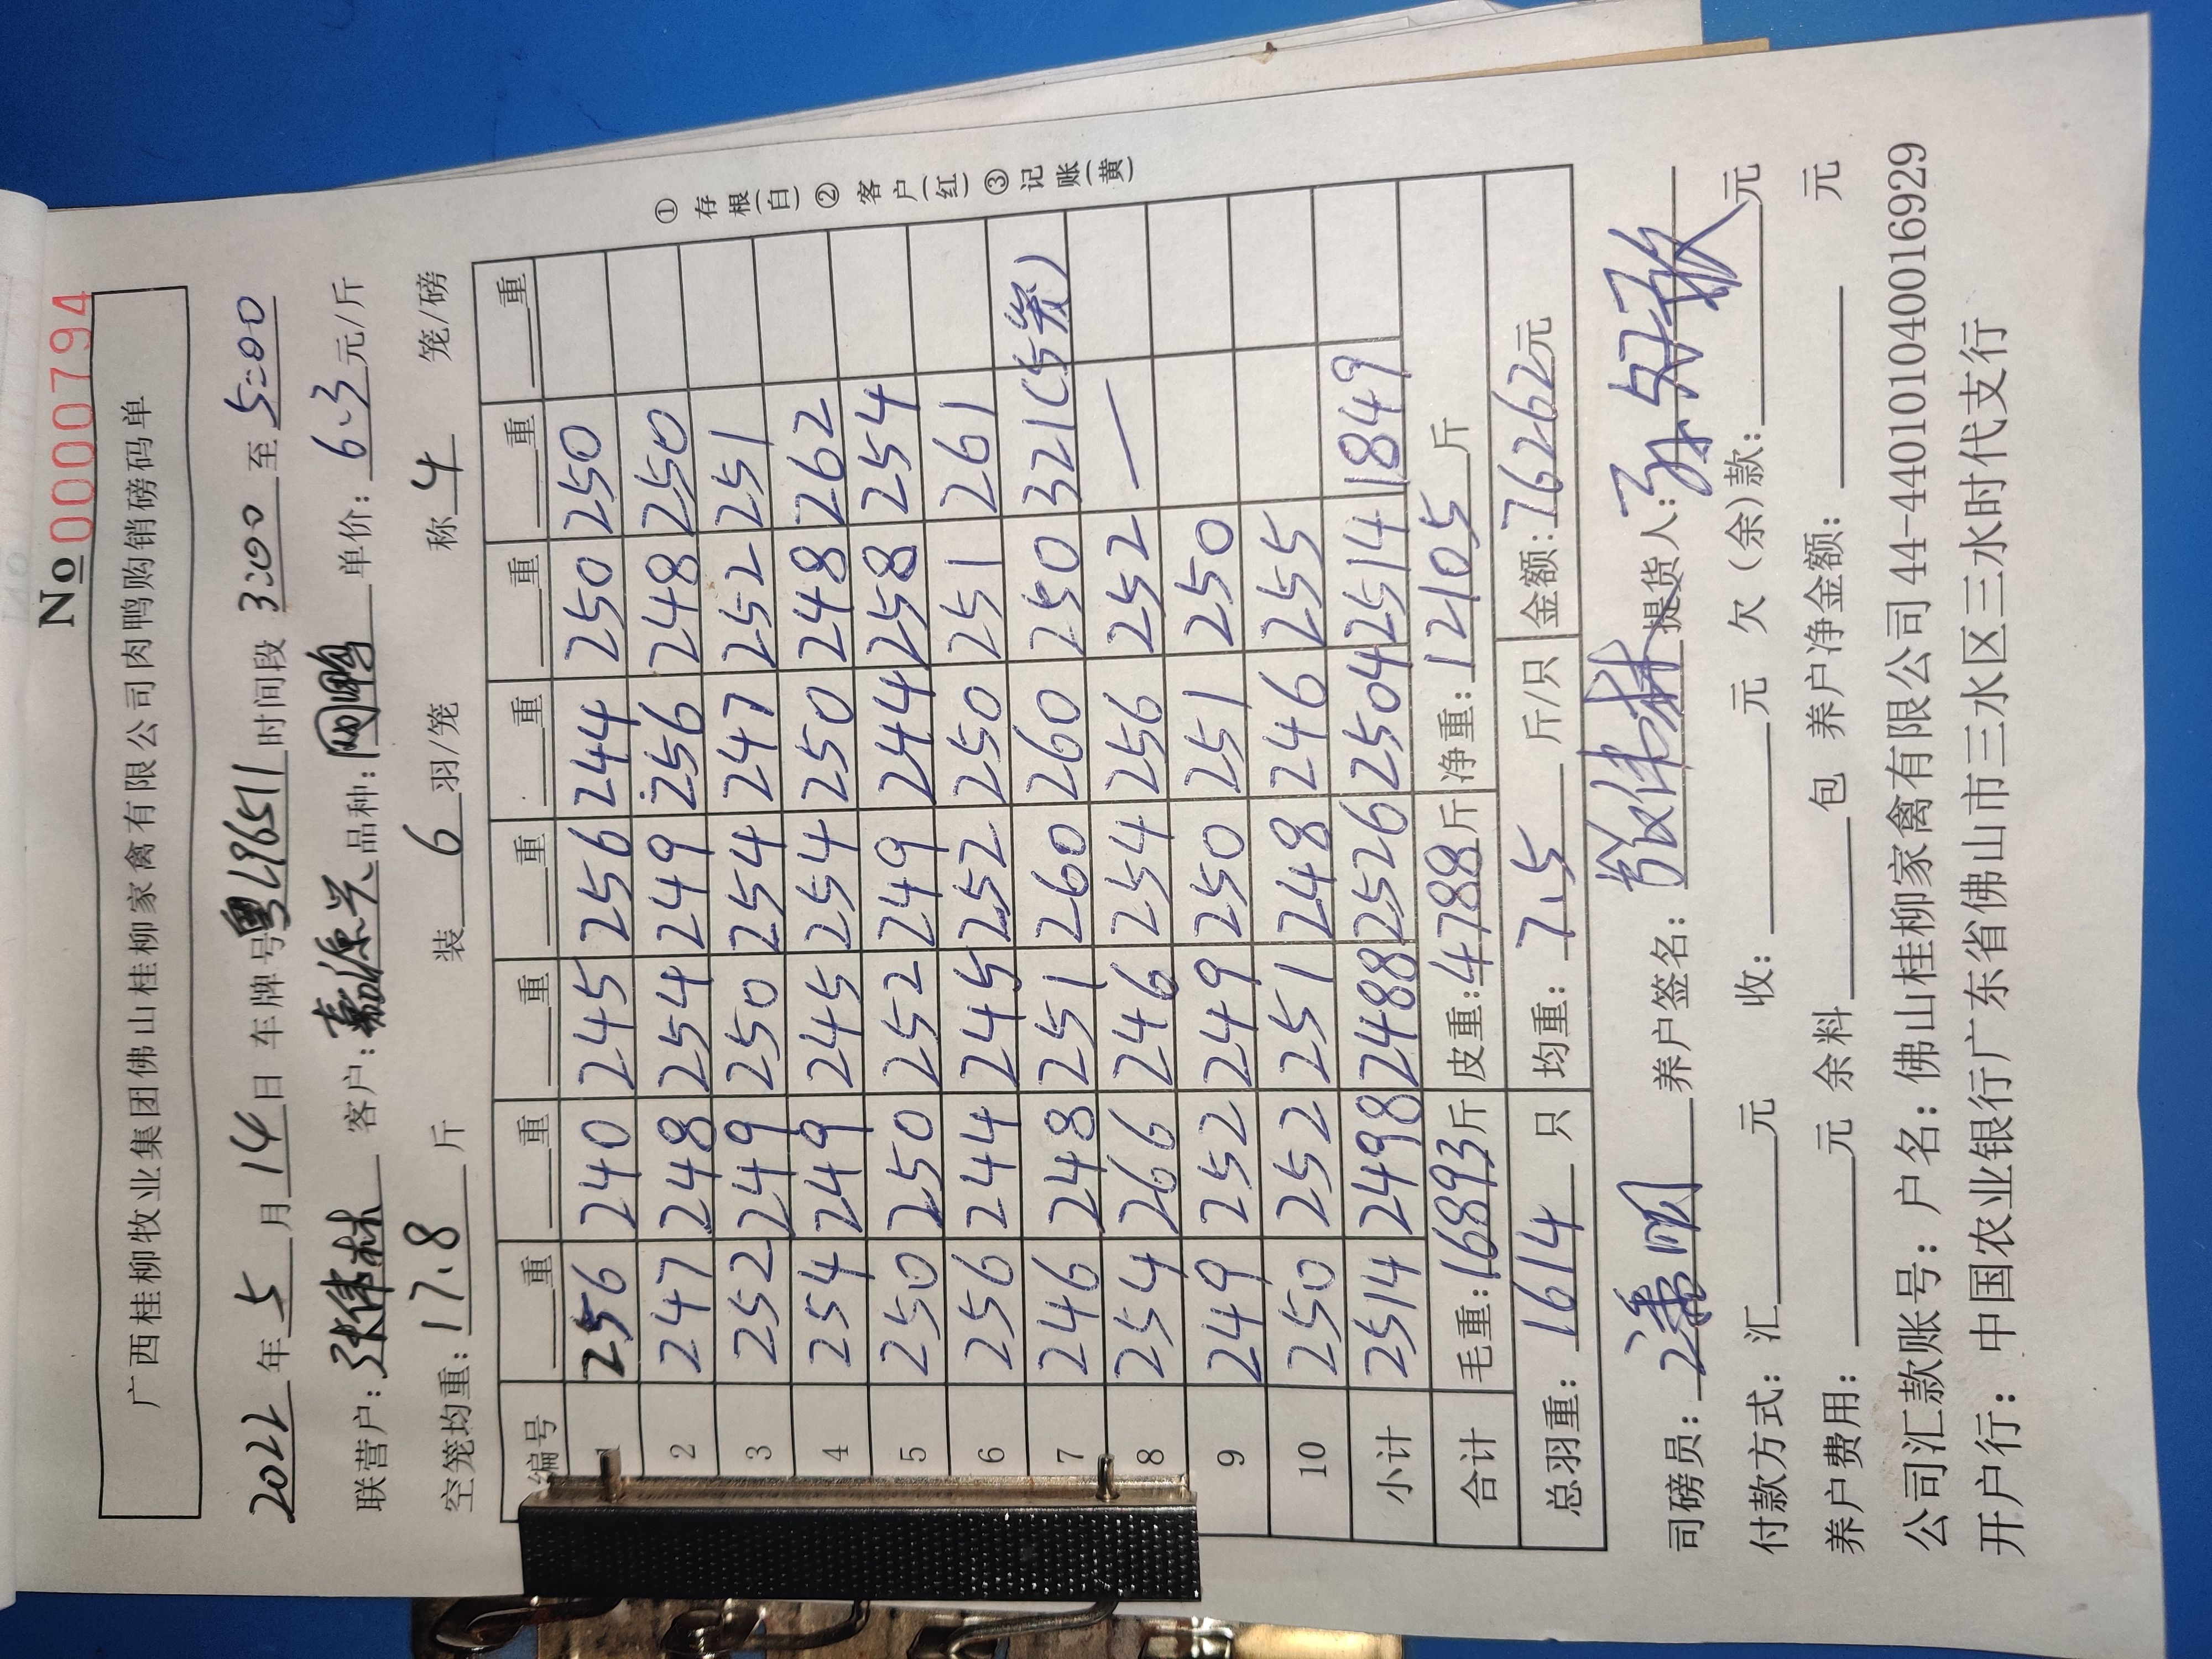 No 0000794
广西桂柳牧业集团佛山桂柳家禽有限公司肉鸭购销磅码单
2022年5月14日 车牌号粤L9651 时间段3:00至5:00
联营户:张伟林 客户:嘉源兴 品种:网鸭 单价:6.3元/斤
空笼均重:17.8斤 装6羽/笼 称4笼/磅
编号 重 重 重 重 重 重 重
1 256 240 245 256 244 250 250
2 247 248 254 249 256 248 250
3 252 249 250 254 247 252 251
4 254 249 245 254 250 248 262
5 250 250 252 249 244 258 254
6 256 244 245 252 250 251 261
7 246 248 251 260 260 250 321(5笼)
8 254 266 246 254 256 252 —
9 249 252 249 250 251 250
10 250 252 251 248 246 255
小计 2514 2498 2488 2526 2504 2514 1849
合计 毛重:16893斤 皮重:4788斤 净重:12105斤
总羽重:1614只 均重:7.5斤/只 金额:76262元
①存根(白)②客户(红)③记账(黄)
司磅员:潘明 养户签名:张伟林 提货人:
付款方式:汇 元 收: 元 欠(余)款: 元
养户费用: 元 余料 包 养户净金额: 元
公司汇款账号:户名:佛山桂柳家禽有限公司44-440101040016929
开户行:中国农业银行广东省佛山市三水区三水时代支行